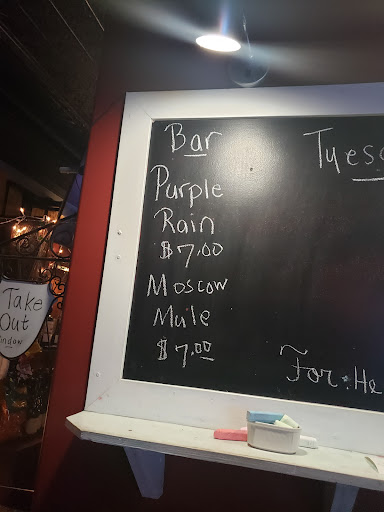 Bar
Purple
Rain
$7.00
Moscow
Mule
$7.00
Tuesd
~
For: He
Take
Out
indow